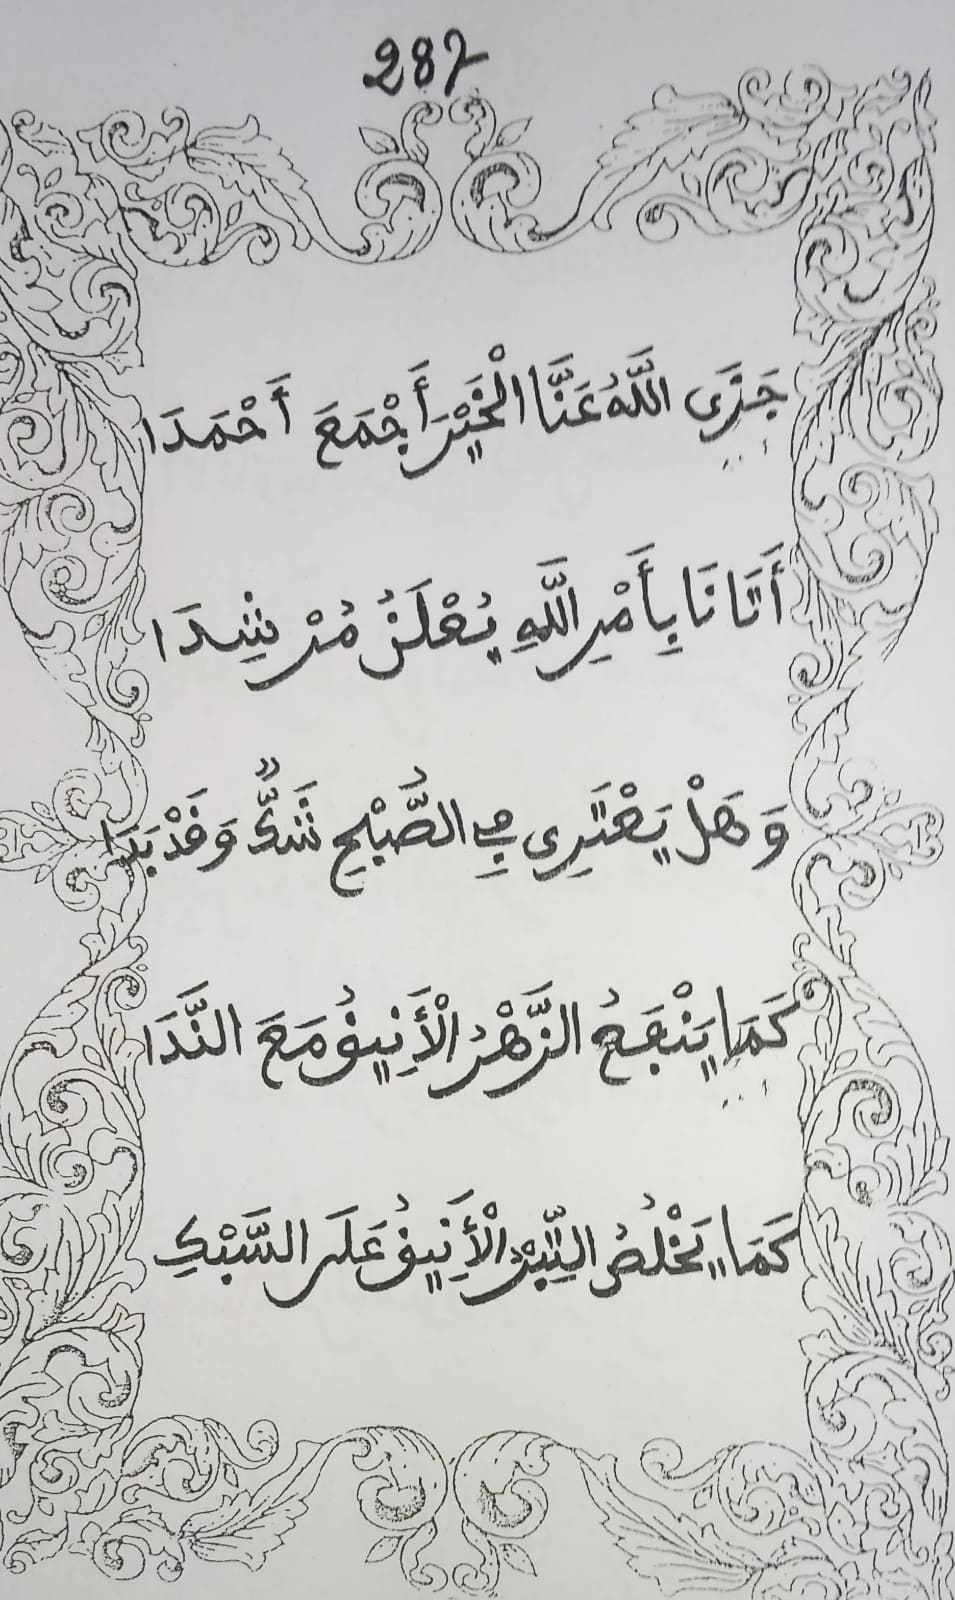 287
جَزَى اللَّهُ عَنَّا الْخَيْرَ أَجْمَعَ أَحْمَدَا
أَتَانَا بِأَمْرِ اللَّهِ يُعْلَنُ مُرْشِدَا
وَهَلْ يَعْتَرِى فِي الصُّبْحِ شَكٌّ وَقَدْ بَدَا
كَمَا يَنْفَعُ الزَّهْرُ الْأَنِيقُ مَعَ النَّدَا
كَمَا يَخْلُصُ التِّبْرُ الْأَنِيقُ عَلَى السَّبْكِ